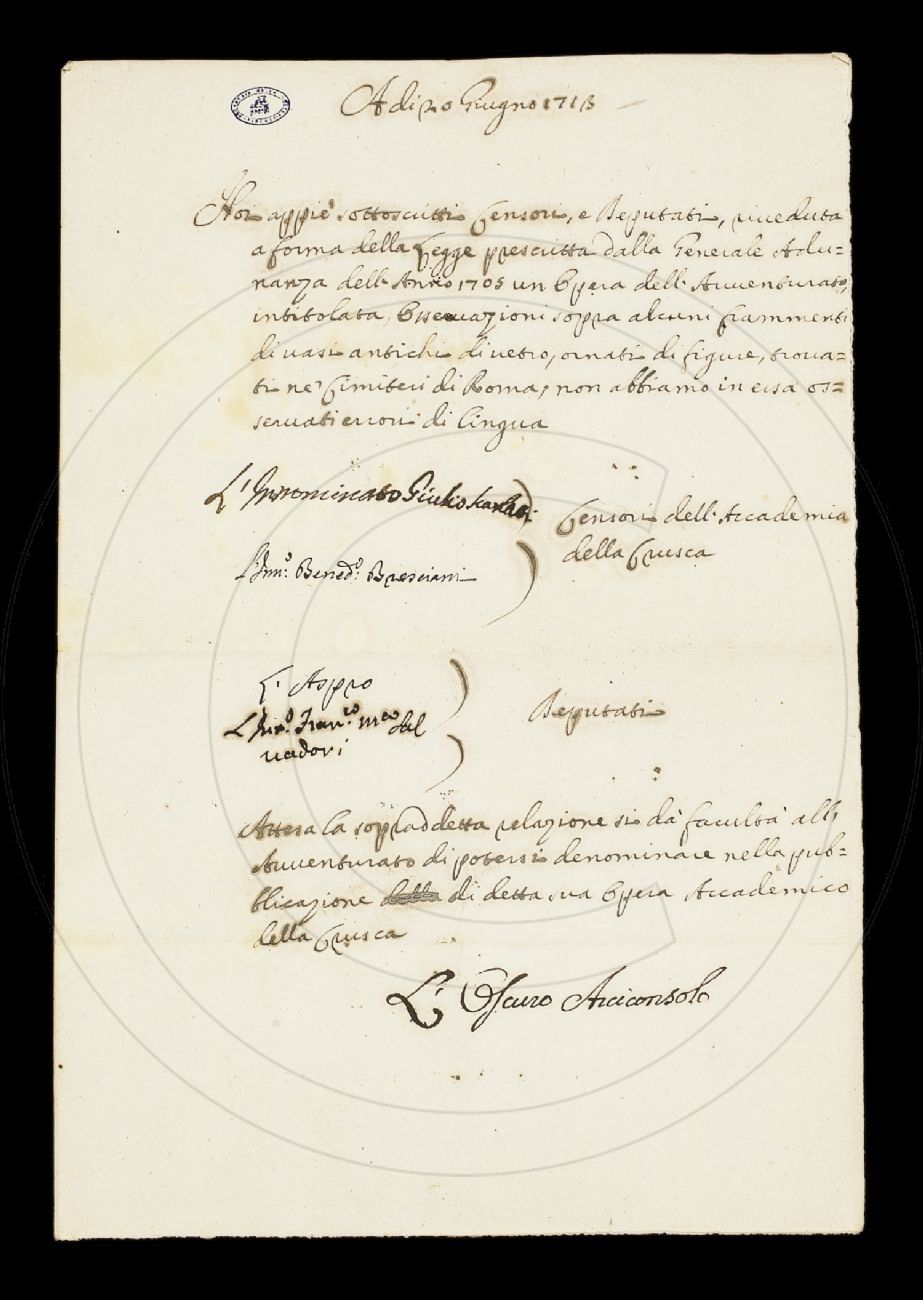 Adi 20 Giugno 1715
Noi appiè sottoscritti Censori, e Deputati, riveduta
a forma della Legge prescritta dalla Generale Adu=
nanza dell'Anno 1705 un Opera dell'Avventurato,
intitolata, Osservazioni sopra alcuni frammenti
di vasi antichi di vetro, ornati di figure, trova=
ti ne' Cimiteri di Roma, non abbiamo in essa os=
servati errori di lingua
L'Innominato Giulio
Censori dell'Accademia
della Crusca
L'Inn.º Bened.º Bresciani
L'Aspro
Deputati
L'Inn.º Fran.co M.ca Sal
vadori
Attesa la sopraddetta relazione si dà facultà all'
Avventurato di potersi denominare nella pub=
blicazione di detta sua Opera Accademico
della Crusca
L'Oscuro Arciconsolo